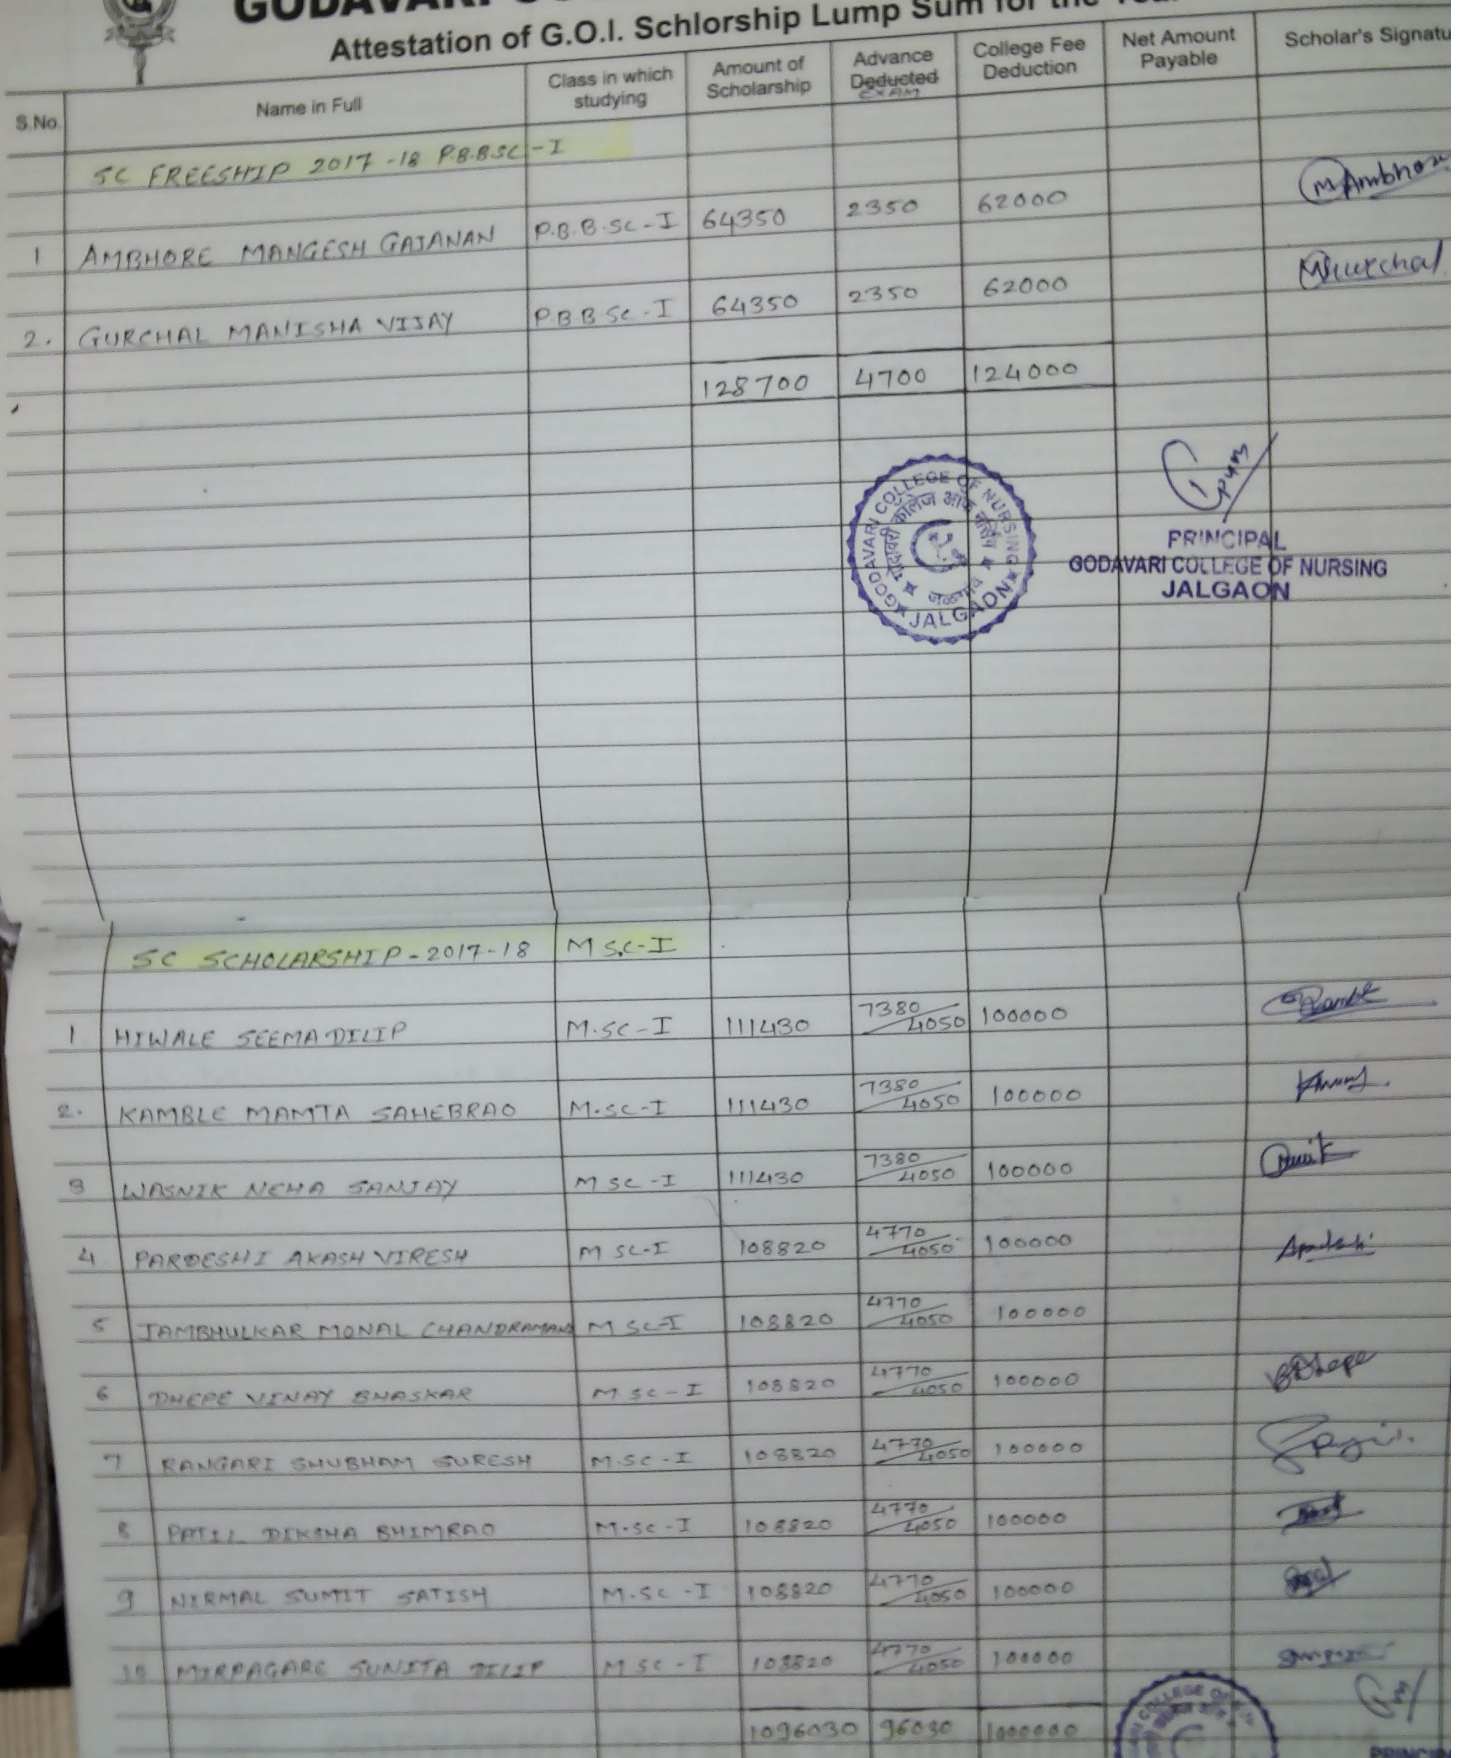 GODAVARI
Attestation of G.O.I. Schlorship Lump Sum for the
S.No. Name in Full Class in which studying Amount of Scholarship Advance Deducted EXAM College Fee Deduction Net Amount Payable Scholar's Signatu
SC FREESHIP 2017-18 P.B.B.SC-I
1 AMBHORE MANGESH GAJANAN P.B.B.SC-I 64350 2350 62000 MAmbhore
2. GURCHAL MANISHA VIJAY P.B.B SC-I 64350 2350 62000
128700 4700 124000
GODAVARI COLLEGE OF NURSING
गोदावरी कॉलेज ऑफ नर्सिंग
जळगाव
JALGAON
PRINCIPAL
GODAVARI COLLEGE OF NURSING
JALGAON
SC SCHOLARSHIP-2017-18 M SC-I
1 HIWALE SEEMA DILIP M.SC-I 111430 7380/4050 100000
2. KAMBLE MAMTA SAHEBRAO M.SC-I 111430 7380/4050 100000
3 WASNIK NEHA SANJAY M SC-I 111430 7380/4050 100000
4 PARDESHI AKASH VIRESH M SC-I 108820 4770/4050 100000
5 JAMBHULKAR MONAL CHANDRAMANI M SC-I 108820 4770/4050 100000
6 DHEPE VINAY BHASKAR M.SC-I 108820 4770/4050 100000
7 RANGARI SHUBHAM SURESH M.SC-I 108820 4770/4050 100000
8 PATIL DIKSHA BHIMRAO M.SC-I 108820 4770/4050 100000
9 NIRMAL SUMIT SATISH M.SC-I 108820 4770/4050 100000
10 MIRPAGARE SUNITA DILIP M SC-I 108820 4770/4050 100000
1096030 96030 1000000
COLLEGE OF